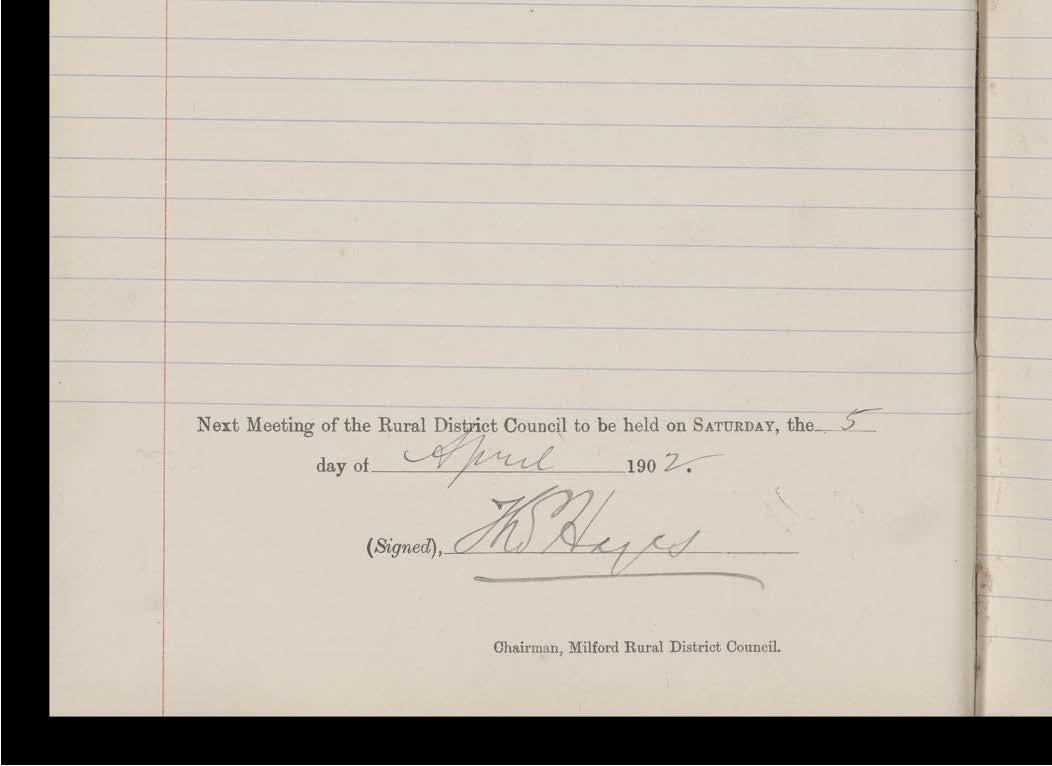 Next Meeting of the Rural District Council to be held on SATURDAY, the 5
day of April 1902.
(Signed), Thos Hayes
Chairman, Milford Rural District Council.